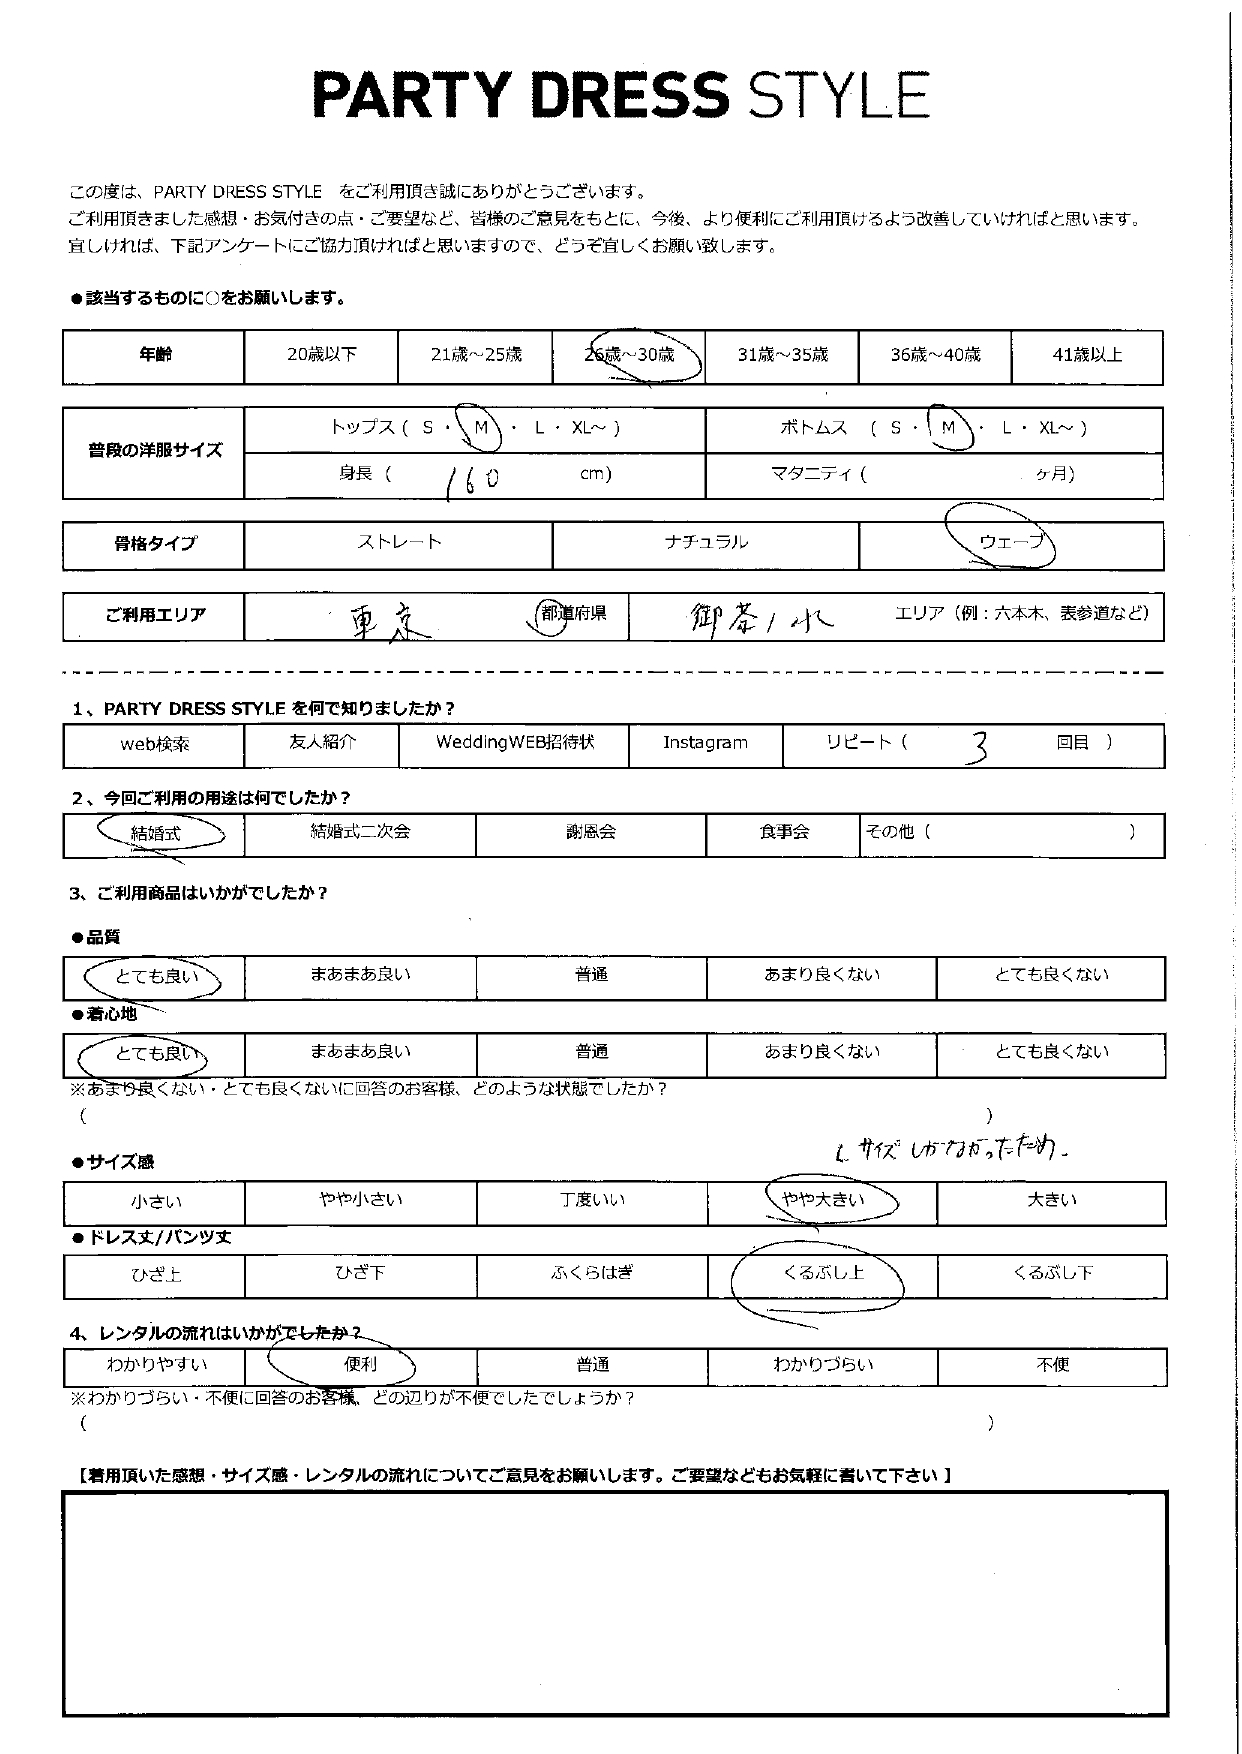 PARTY DRESS STYLE
この度は、PARTY DRESS STYLE をご利用頂き誠にありがとうございます。
ご利用頂きました感想・お気付きの点・ご要望など、皆様のご意見をもとに、今後、より便利にご利用頂けるよう改善していければと思います。
宜しければ、下記アンケートにご協力頂ければと思いますので、どうぞ宜しくお願い致します。
●該当するものに○をお願いします。
年齢 20歳以下 21歳～25歳 26歳～30歳 31歳～35歳 36歳～40歳 41歳以上
普段の洋服サイズ トップス ( S ・ M ・ L ・ XL～ ) ボトムス ( S ・ M ・ L ・ XL～ )
身長 ( 160 cm) マタニティ ( ヶ月)
骨格タイプ ストレート ナチュラル ウェーブ
ご利用エリア 東京 都道府県 御茶ノ水 エリア（例：六本木、表参道など）
1、PARTY DRESS STYLE を何で知りましたか？
web検索 友人紹介 WeddingWEB招待状 Instagram リピート ( 3 回目 )
2、今回ご利用の用途は何でしたか？
結婚式 結婚式二次会 謝恩会 食事会 その他 ( )
3、ご利用商品はいかがでしたか？
●品質
とても良い まあまあ良い 普通 あまり良くない とても良くない
●着心地
とても良い まあまあ良い 普通 あまり良くない とても良くない
※あまり良くない・とても良くないに回答のお客様、どのような状態でしたか？
( )
Lサイズしかなかったため.
●サイズ感
小さい やや小さい 丁度いい やや大きい 大きい
●ドレス丈/パンツ丈
ひざ上 ひざ下 ふくらはぎ くるぶし上 くるぶし下
4、レンタルの流れはいかがでしたか？
わかりやすい 便利 普通 わかりづらい 不便
※わかりづらい・不便に回答のお客様、どの辺りが不便でしたでしょうか？
( )
【着用頂いた感想・サイズ感・レンタルの流れについてご意見をお願いします。ご要望などもお気軽に書いて下さい 】